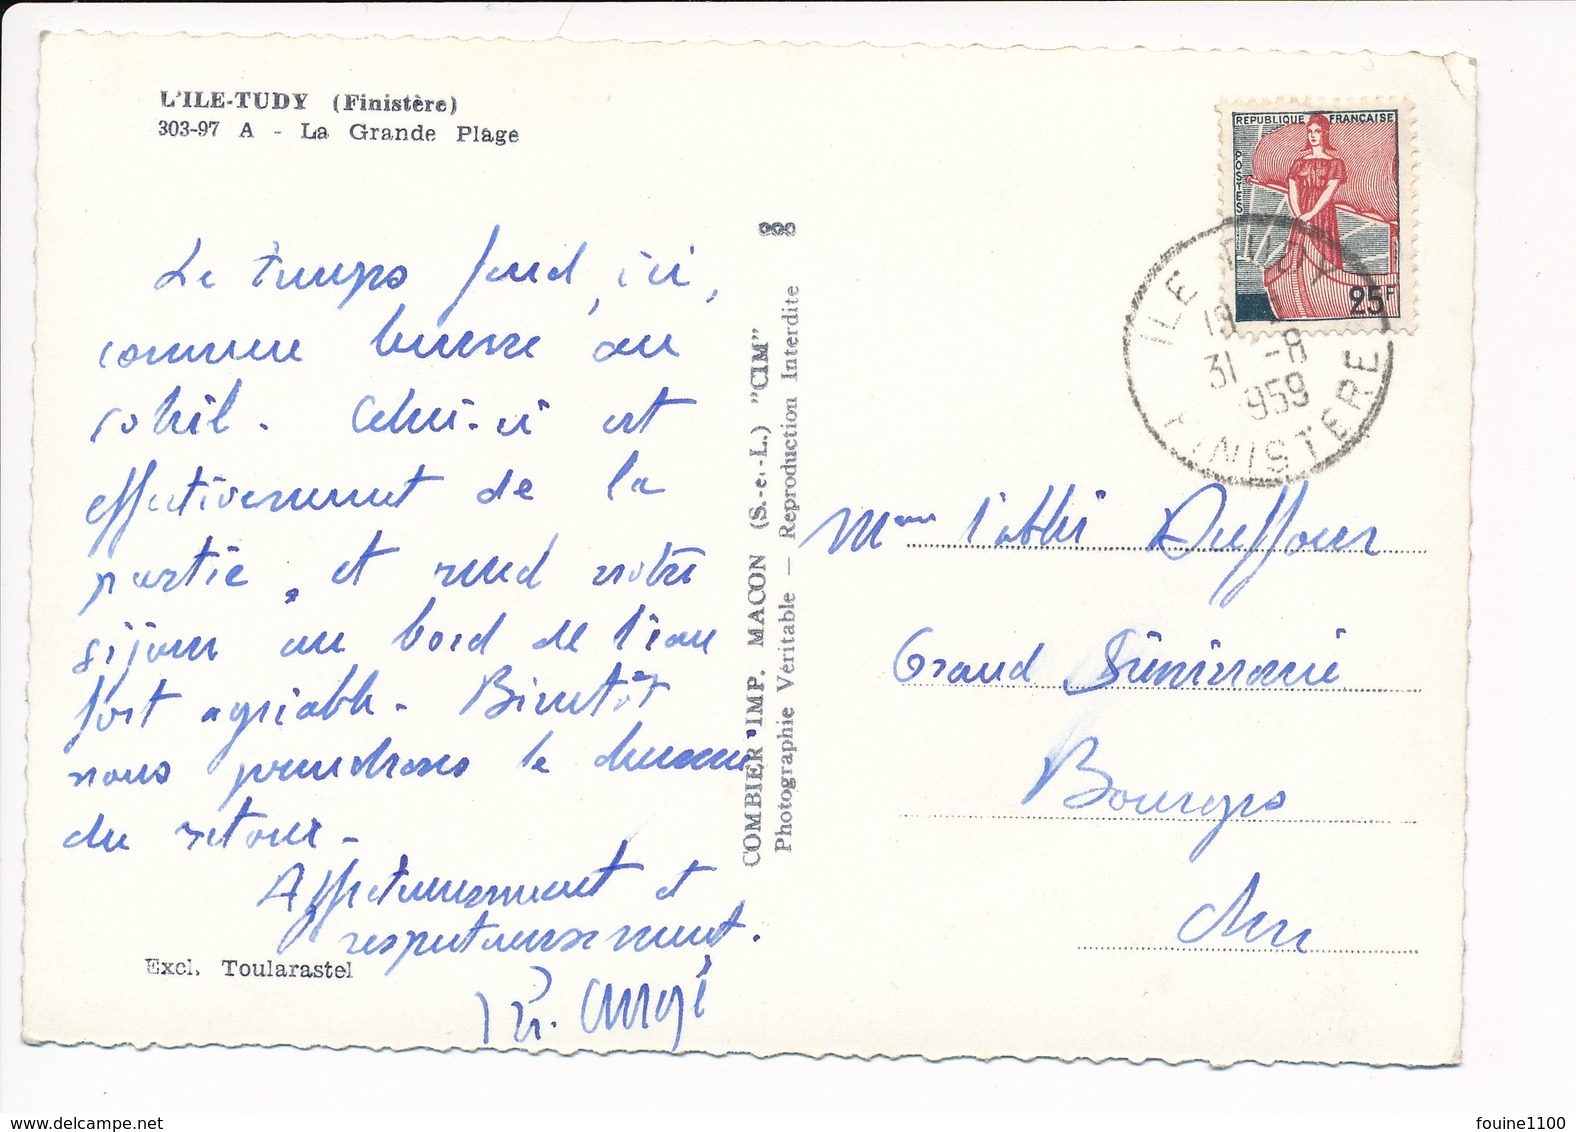 L'ILE-TUDY (Finistère)
303-97 A - La Grande Plage
Le temps fond, ici,
comme beurre au
soleil. Celui-ci est
effectivement de la
partie, et rend notre
séjour au bord de l'eau
fort agréable. Bientôt
nous prendrons le chemin
du retour.
Affectueusement et
respectueusement.
Excl. Toularastel
COMBIER IMP. MACON (S.-et-L.) "CIM"
Photographie Véritable — Reproduction Interdite
REPUBLIQUE FRANÇAISE
POSTES
25F
ILE TUDY
31 -8
1959
FINISTERE
l'abbé Duffour
Grand Séminaire
Bourges
Cher
fouine1100